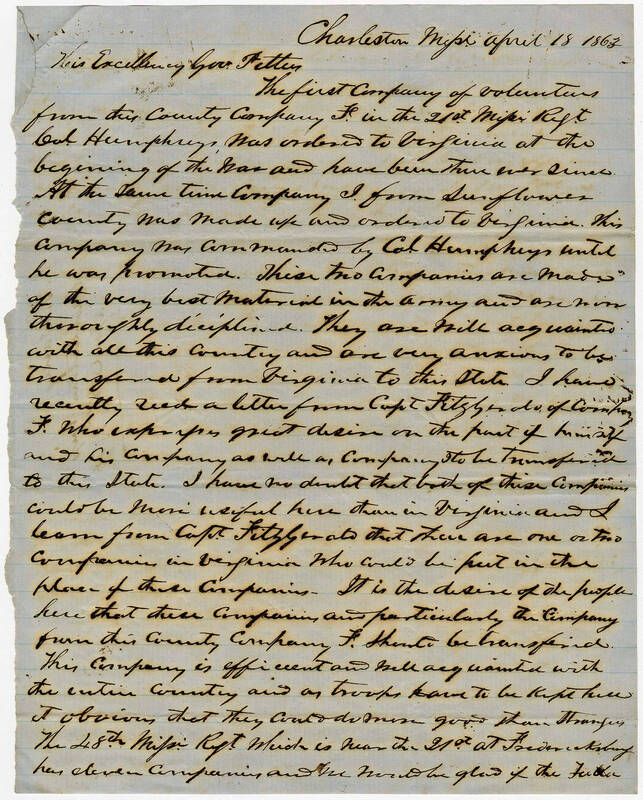 Charleston Missi April 18 1863
His Excellency Gov. Pettus
The first Company of volunteers
from this County Company F. in the 21st Missi Regt
Col Humphreys was ordered to Virginia at the
begining of the War and have been there ever since
At the same time Company I. from Sunflower
County was made up and ordered to Virginia. This
Company was commanded by Col Humphreys until
he was promoted. These two Companies are made
of the very best material in the army and are now
thoroughly deciplined. They are well acquainted
with all this Country and are very anxious to be
transferred from Virginia to this State. I have
recently recd a letter from Capt Fitzgerald of Company
F. who expresses great desire on the part of himself
and his Company as well as Company I to be transfered
to this State. I have no doubt that both of these Companies
could be more useful here than in Virginia and I
learn from Capt. Fitzgerald that there are one or two
Companies in Virginia who could be put in the
place of these Companies. It is the desire of the people
here that these Companies and particularly the Company
from this County Company F. should be transfered.
This Company is efficient and well acquainted with
the entire Country and as troops have to be kept here
it obvious that they could do more good than strangers
The 48th Missi Regt which is near the 21st at Fredericksburg
has eleven Companies and we would be glad if the